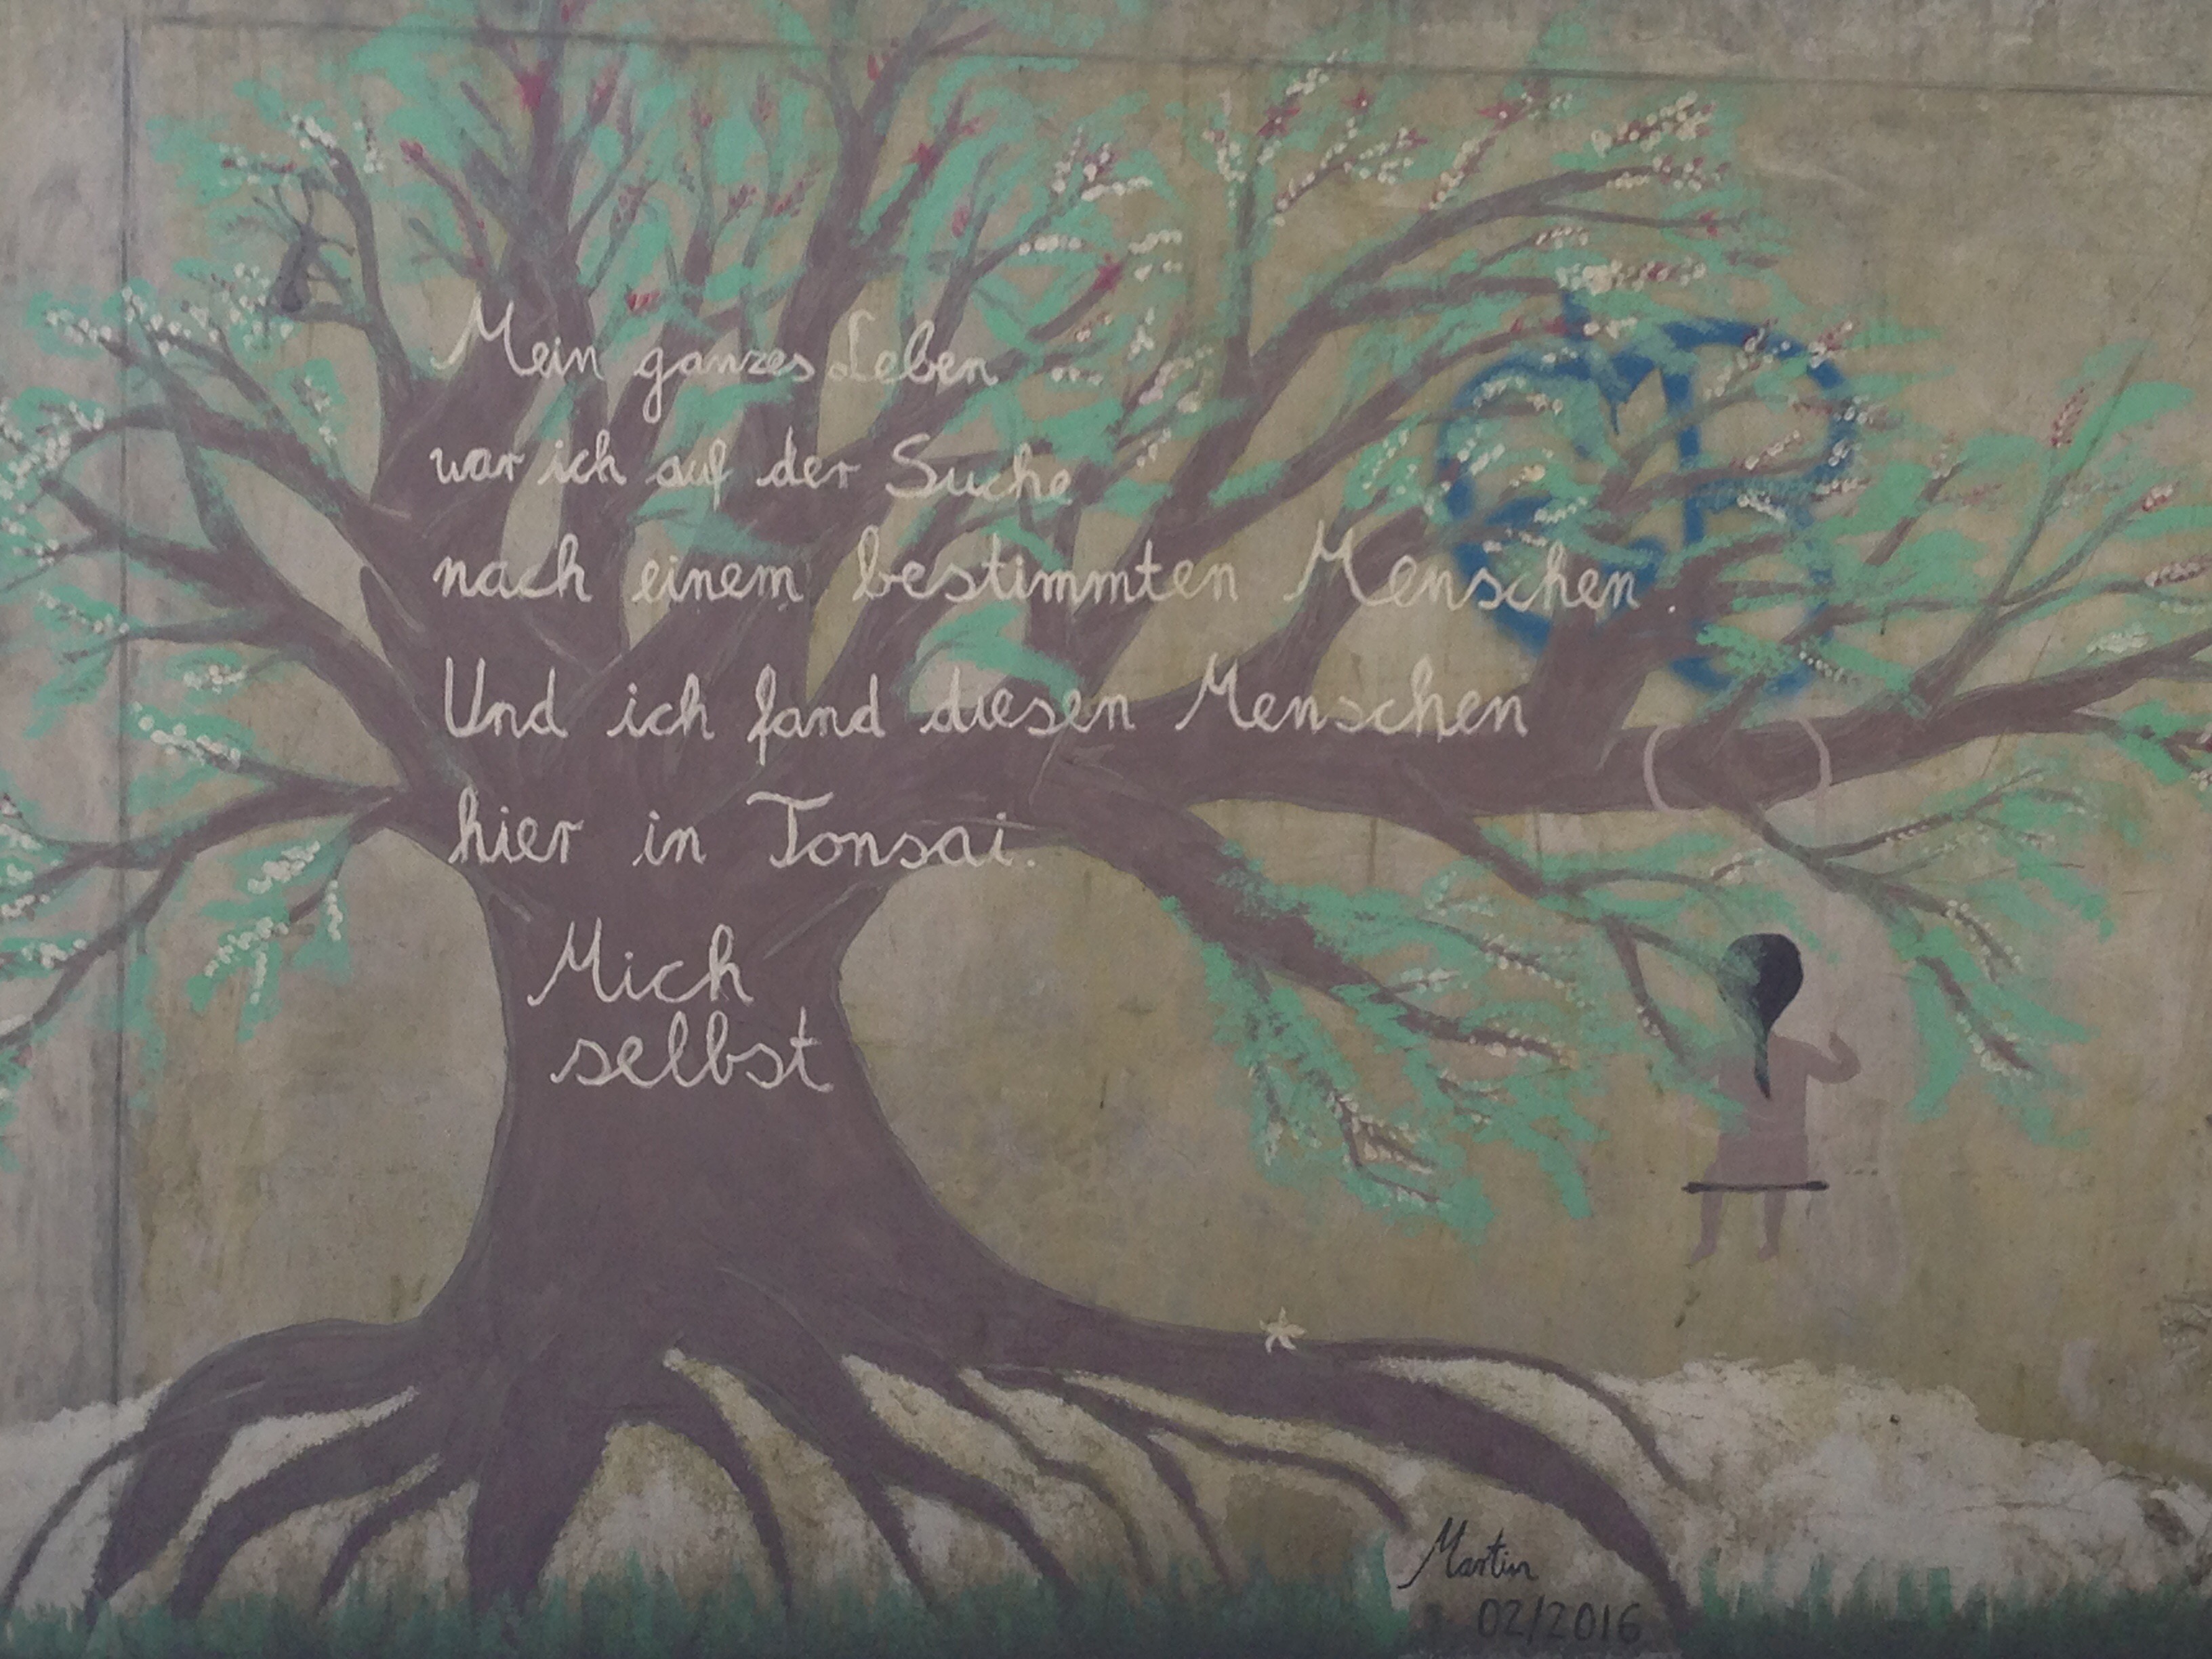 Mein ganzes Leben
war ich auf der Suche
nach einem bestimmten Menschen.
Und ich fand diesen Menschen
hier in Tonsai.
Mich
selbst
Martin
02/2016